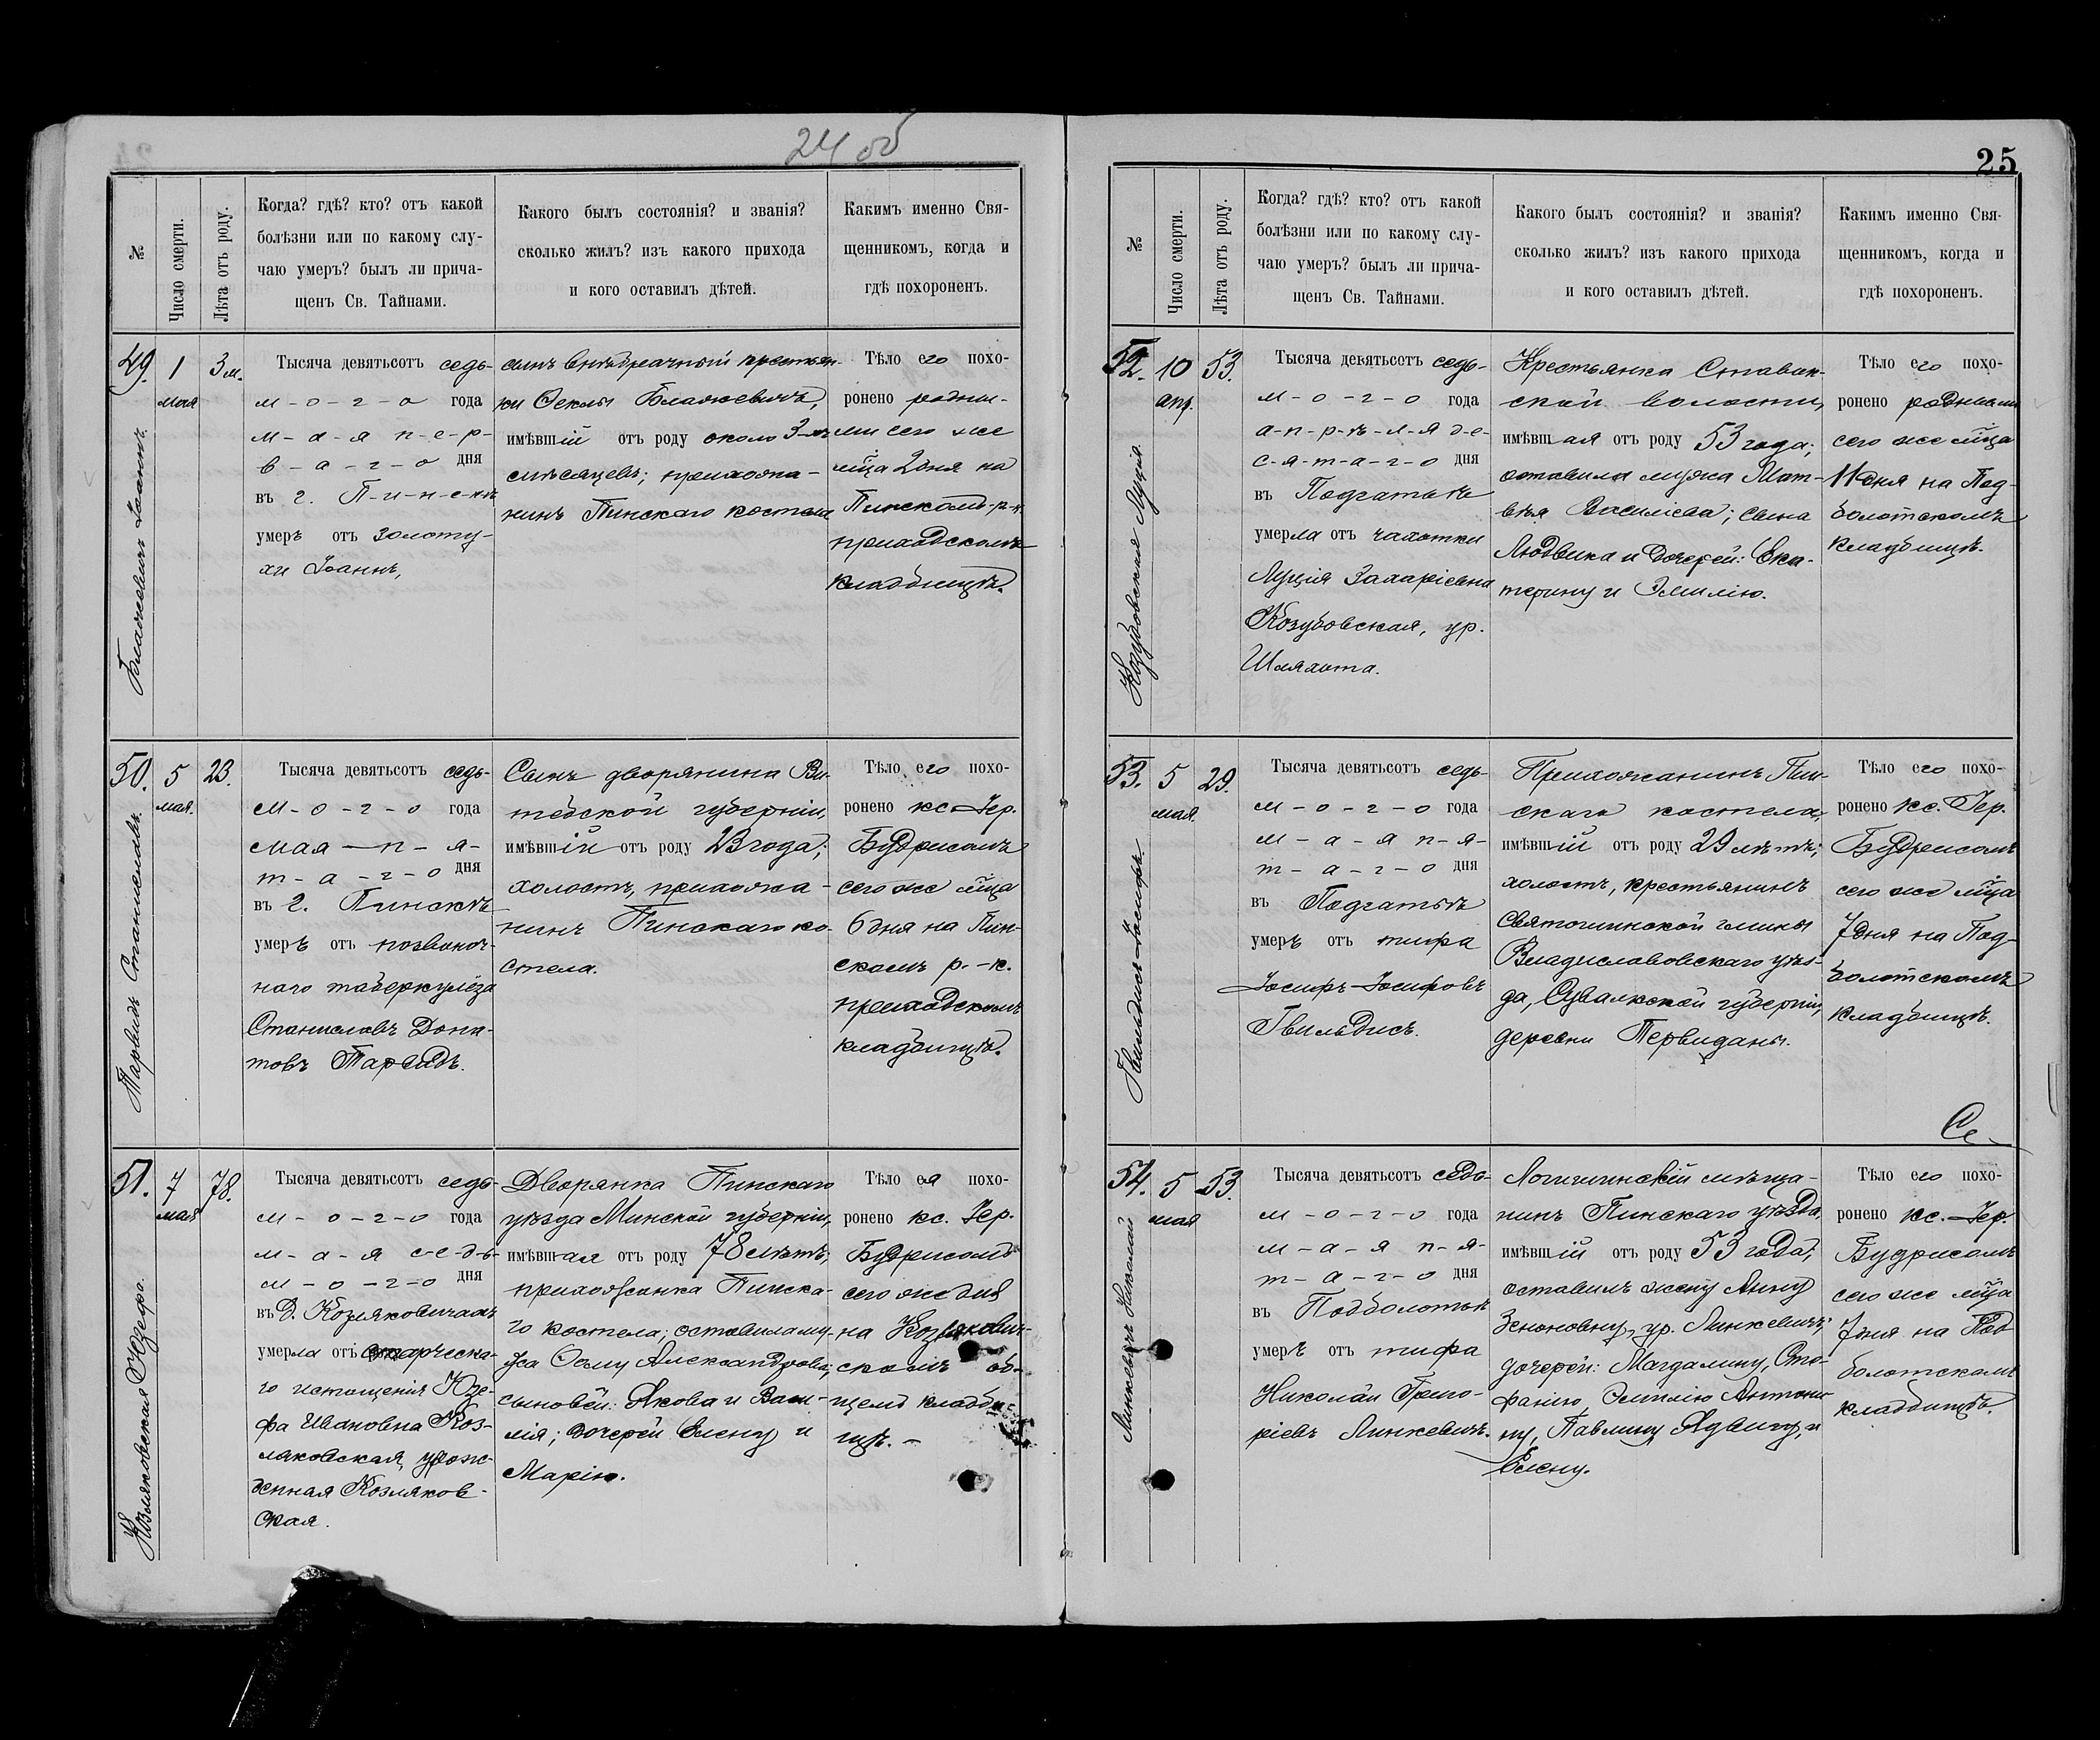 24 об
№
Число смерти.
Лѣта отъ роду.
Когда? гдѣ? кто? отъ какой
болѣзни или по какому слу-
чаю умеръ? былъ ли прича-
щенъ Св. Тайнами.
Какого былъ состоянія? и званія?
сколько жилъ? изъ какого прихода
и кого оставилъ дѣтей.
Какимъ именно Свя-
щенникомъ, когда и
гдѣ похороненъ.
49.
Іоаннъ.
1
мая
3 м.
Тысяча девятьсотъ седь-
м-о-г-о года
м-а-я п-е-р-
в-а-г-о дня
въ г. П-и-н-с-к-ѣ
умеръ отъ золоту-
хи Іоаннъ,
сынъ внѣбрачный крестьян-
ки Ѳеклы
имѣвшій отъ роду около 3-хъ
мѣсяцевъ; прихожа-
нинъ Пинскаго костела
Тѣло его похо-
ронено родны-
ми сего же
м̃ца 2 дня на
Пинскомъ р-к.
приходскомъ
кладбищѣ.
50.
Тарвидъ Станиславъ.
5
мая.
23.
Тысяча девятьсотъ седь-
м-о-г-о года
мая п-я-
т-а-г-о дня
въ г. Пинскѣ
умеръ отъ позвоноч-
наго туберкулёза
Станиславъ Дона-
товъ Тарвидъ.
Сынъ дворянина Ви-
тебской губерніи,
имѣвшій отъ роду 23 года;
холостъ, прихожа-
нинъ Пинскаго ко-
стела.
Тѣло его похо-
ронено кс. Іер.
Будрисомъ
сего же м̃ца
6 дня на Пин-
скомъ р.-к.
приходскомъ
кладбищѣ.
51.
Козляковская Юзефа.
7
мая
78.
Тысяча девятьсотъ седь-
м-о-г-о года
м-а-я с-е-дь-
м-о-г-о дня
въ д. Козляковичахъ
умерла отъ старческа-
го истощенія Юзе-
фа Ивановна Коз-
ляковская, урож-
денная Козляков-
ская.
Дворянка Пинскаго
уѣзда Минской губерніи,
имѣвшая отъ роду 78 лѣтъ;
прихожанка Пинска-
го костела; оставила му-
жа Ѳому Александрова;
сыновей: Якова и Васи-
лія; дочерей Елену и
Марію.
Тѣло ея похо-
ронено кс. Іер.
Будрисомъ
сего же дня
на Козлякович-
скомъ об-
щемъ кладби-
щѣ.-
25
№
Число смерти.
Лѣта отъ роду.
Когда? гдѣ? кто? отъ какой
болѣзни или по какому слу-
чаю умеръ? былъ ли прича-
щенъ Св. Тайнами.
Какого былъ состоянія? и званія?
сколько жилъ? изъ какого прихода
и кого оставилъ дѣтей.
Какимъ именно Свя-
щенникомъ, когда и
гдѣ похороненъ.
52.
Козубовская Луція.
10
апр.
53.
Тысяча девятьсотъ седь-
м-о-г-о года
а-п-р-ѣ-л-я д-е-
с-я-т-а-г-о дня
въ Подгатьѣ
умерла отъ чахотки
Луція Захаріевна
Козубовская, ур.
Шляхота.
Крестьянка Ставок-
ской волости,
имѣвшая отъ роду 53 года;
оставила мужа Мат-
вѣя Васильева; сына
Людвика и дочерей: Ека-
терину и Эмилію.
Тѣло его похо-
ронено родными
сего же м̃ца
11 дня на Под-
болотскомъ
кладбищѣ.
53.
Гвильдисъ Іосифъ.
5
мая.
29.
Тысяча девятьсотъ седь-
м-о-г-о года
м-а-я п-я-
т-а-г-о дня
въ Подгатьѣ
умеръ отъ тифа
Іосифъ Іосифовъ
Гвильдисъ.
Прихожанинъ Пин-
скаго костела,
имѣвшій отъ роду 29 лѣтъ;
холостъ, крестьянинъ
Святошинской гмины
Владиславовскаго уѣз-
да, Сувалкской губерніи,
деревни Первиданы.
Тѣло его похо-
ронено кс. Іер.
Будрисомъ
сего же м̃ца
7 дня на Под-
болотскомъ
кладбищѣ.
Се-
54.
Линкевичъ Николай
5
мая
53.
Тысяча девятьсотъ седь-
м-о-г-о года
м-а-я п-я-
т-а-г-о дня
въ Подболотьѣ
умеръ отъ тифа
Николай Григо-
ріевъ Линкевичъ.
Логишинскій мѣща-
нинъ Пинскаго уѣзда,
имѣвшій отъ роду 53 года;
оставилъ жену Анну
Зеноновну, ур. Линкевичъ;
дочерей: Магдалину, Сте-
фанію, Эмилію Антони-
ну, Павлину, Ядвигу, и
Елену.
Тѣло его похо-
ронено кс. Іер.
Будрисомъ
сего же м̃ца
7 дня на Под-
болотскомъ
кладбищѣ.